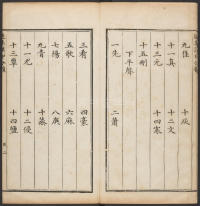 九佳　十灰
十一真　十二文
十三元　十四寒
十五刪
下平聲
一先　二蕭
三肴　四豪
五歌　六麻
七陽　八庚
九青　十蒸
十一尤　十二侵
十三覃　十四鹽